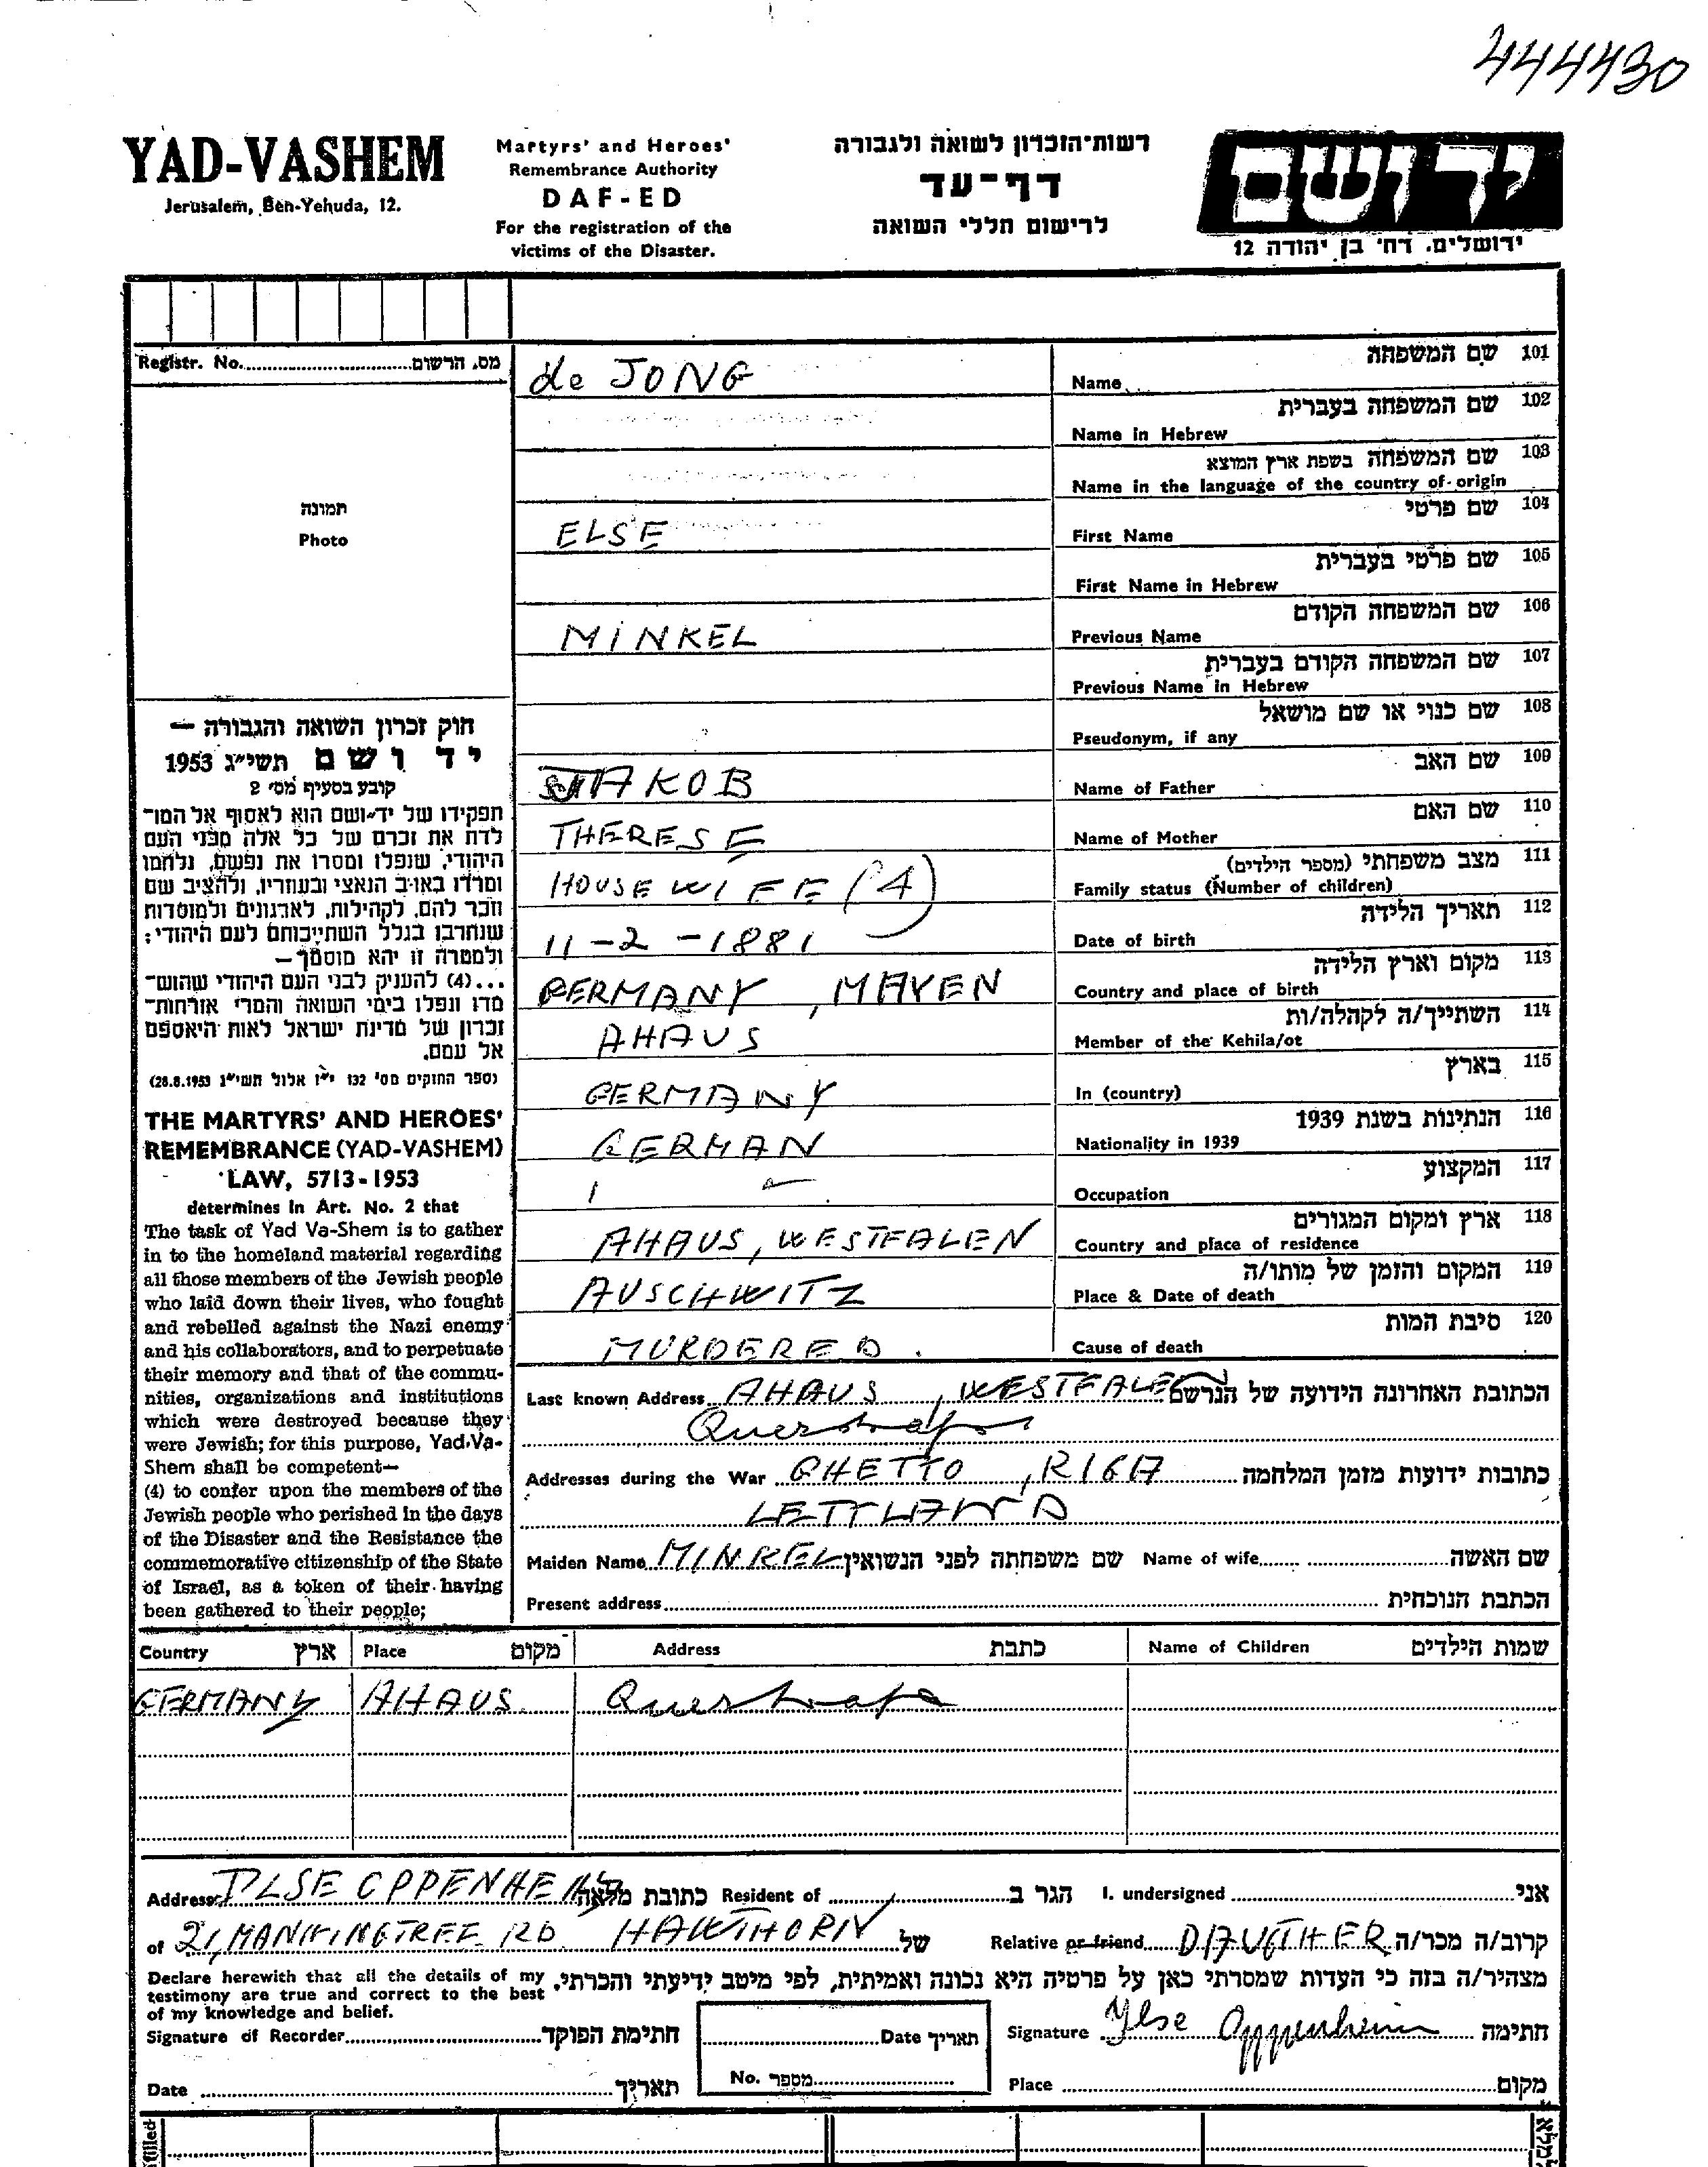 444430
YAD-VASHEM
Jerusalem, Ben-Yehuda, 12.
Martyrs' and Heroes'
Remembrance Authority
DAF-ED
For the registration of the
victims of the Disaster.
רשות־הזכרון לשואה ולגבורה
דף־עד
לרישום חללי השואה
יד ושם
ירושלים, רח' בן יהודה 12
Registr. No. מס. הרשום
תמונה
Photo
חוק זכרון השואה והגבורה —
יד ושם תשי״ג 1953
קובע בסעיף מס׳ 2
תפקידו של יד־ושם הוא לאסוף אל המו־
לדת את זכרם של כל אלה מבני העם
היהודי, שנפלו ומסרו את נפשם, נלחמו
ומרדו באויב הנאצי ובעוזריו, ולהציב שם
וזכר להם, לקהילות, לארגונים ולמוסדות
שנחרבו בגלל השתייכותם לעם היהודי;
ולמטרה זו יהא מוסמך—
...(4) להעניק לבני העם היהודי שהוש־
מדו ונפלו בימי השואה והמרי אזרחות־
זכרון של מדינת ישראל לאות היאספם
אל עמם.
(ספר החוקים מס' 132 י״ז אלול תשי״ג 28.8.1953)
THE MARTYRS' AND HEROES'
REMEMBRANCE (YAD-VASHEM)
LAW, 5713-1953
determines in Art. No. 2 that
The task of Yad Va-Shem is to gather
in to the homeland material regarding
all those members of the Jewish people
who laid down their lives, who fought
and rebelled against the Nazi enemy
and his collaborators, and to perpetuate
their memory and that of the commu-
nities, organizations and institutions
which were destroyed because they
were Jewish; for this purpose, Yad-Va-
Shem shall be competent—
(4) to confer upon the members of the
Jewish people who perished in the days
of the Disaster and the Resistance the
commemorative citizenship of the State
of Israel, as a token of their having
been gathered to their people;
de JONG Name שם המשפחה 101
Name in Hebrew שם המשפחה בעברית 102
Name in the language of the country of origin שם המשפחה בשפת ארץ המוצא 103
ELSE First Name שם פרטי 104
First Name in Hebrew שם פרטי בעברית 105
MINKEL Previous Name שם המשפחה הקודם 106
Previous Name in Hebrew שם המשפחה הקודם בעברית 107
Pseudonym, if any שם כנוי או שם מושאל 108
JAKOB Name of Father שם האב 109
THERESE Name of Mother שם האם 110
HOUSEWIFE (4) Family status (Number of children) מצב משפחתי (מספר הילדים) 111
11-2-1881 Date of birth תאריך הלידה 112
GERMANY, MAYEN Country and place of birth מקום וארץ הלידה 113
AHAUS Member of the Kehila/ot השתייך/ה לקהלה/ות 114
GERMANY In (country) בארץ 115
GERMAN Nationality in 1939 הנתינות בשנת 1939 116
Occupation המקצוע 117
AHAUS, WESTFALEN Country and place of residence ארץ ומקום המגורים 118
AUSCHWITZ Place & Date of death המקום והזמן של מותו/ה 119
MURDERED. Cause of death סיבת המות 120
Last known Address AHAUS, WESTFALEN הכתובת האחרונה הידועה של הנרשם
Querstrasse
Addresses during the War GHETTO, RIGA כתובות ידועות מזמן המלחמה
LETTLAND
Maiden Name MINKEL שם משפחתה לפני הנשואין Name of wife שם האשה
Present address הכתבת הנוכחית
Country ארץ Place מקום Address כתבת Name of Children שמות הילדים
GERMANY AHAUS Querstrasse
Address ILSE OPPENHEIM כתובת מלאה Resident of הגר ב I. undersigned אני
of 21, MANNINGTREE RD HAWTHORN של Relative or friend DAUGTHER קרוב/ה מכר/ה
Declare herewith that all the details of my
testimony are true and correct to the best
of my knowledge and belief.
מצהיר/ה בזה כי העדות שמסרתי כאן על פרטיה היא נכונה ואמיתית, לפי מיטב ידיעתי והכרתי.
Signature of Recorder חתימת הפוקד Date תאריך Signature Ilse Oppenheim חתימה
Date תאריך No. מספר Place מקום
filled